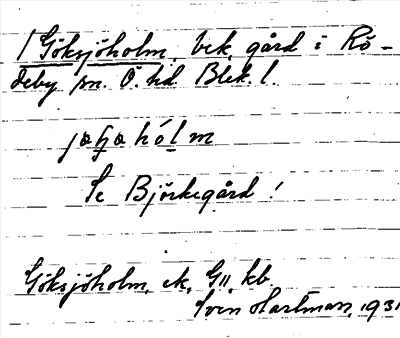 1 Göksjöholm, bek. gård i Rö-
deby sn. Ö. hd. Blek. l.
hólm
Se Björkegård!
Göksjöholm, ek, G11, kb.
Sven Hartman, 1931